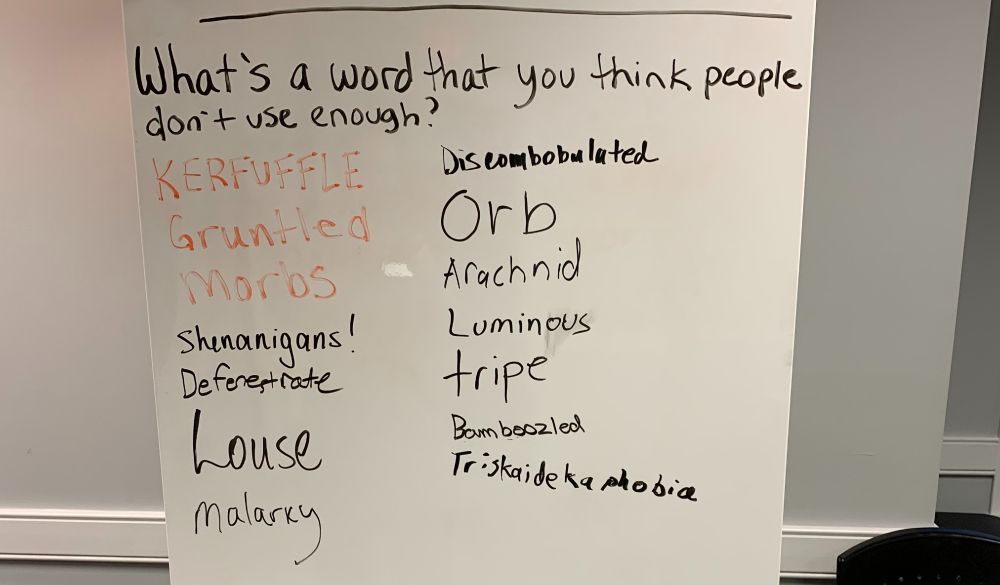 What's a word that you think people
don't use enough?
KERFUFFLE
Gruntled
Morbs
Shenanigans!
Defenestrate
Louse
Malarky
Discombobulated
Orb
Arachnid
Luminous
tripe
Bamboozled
Triskaidekaphobia